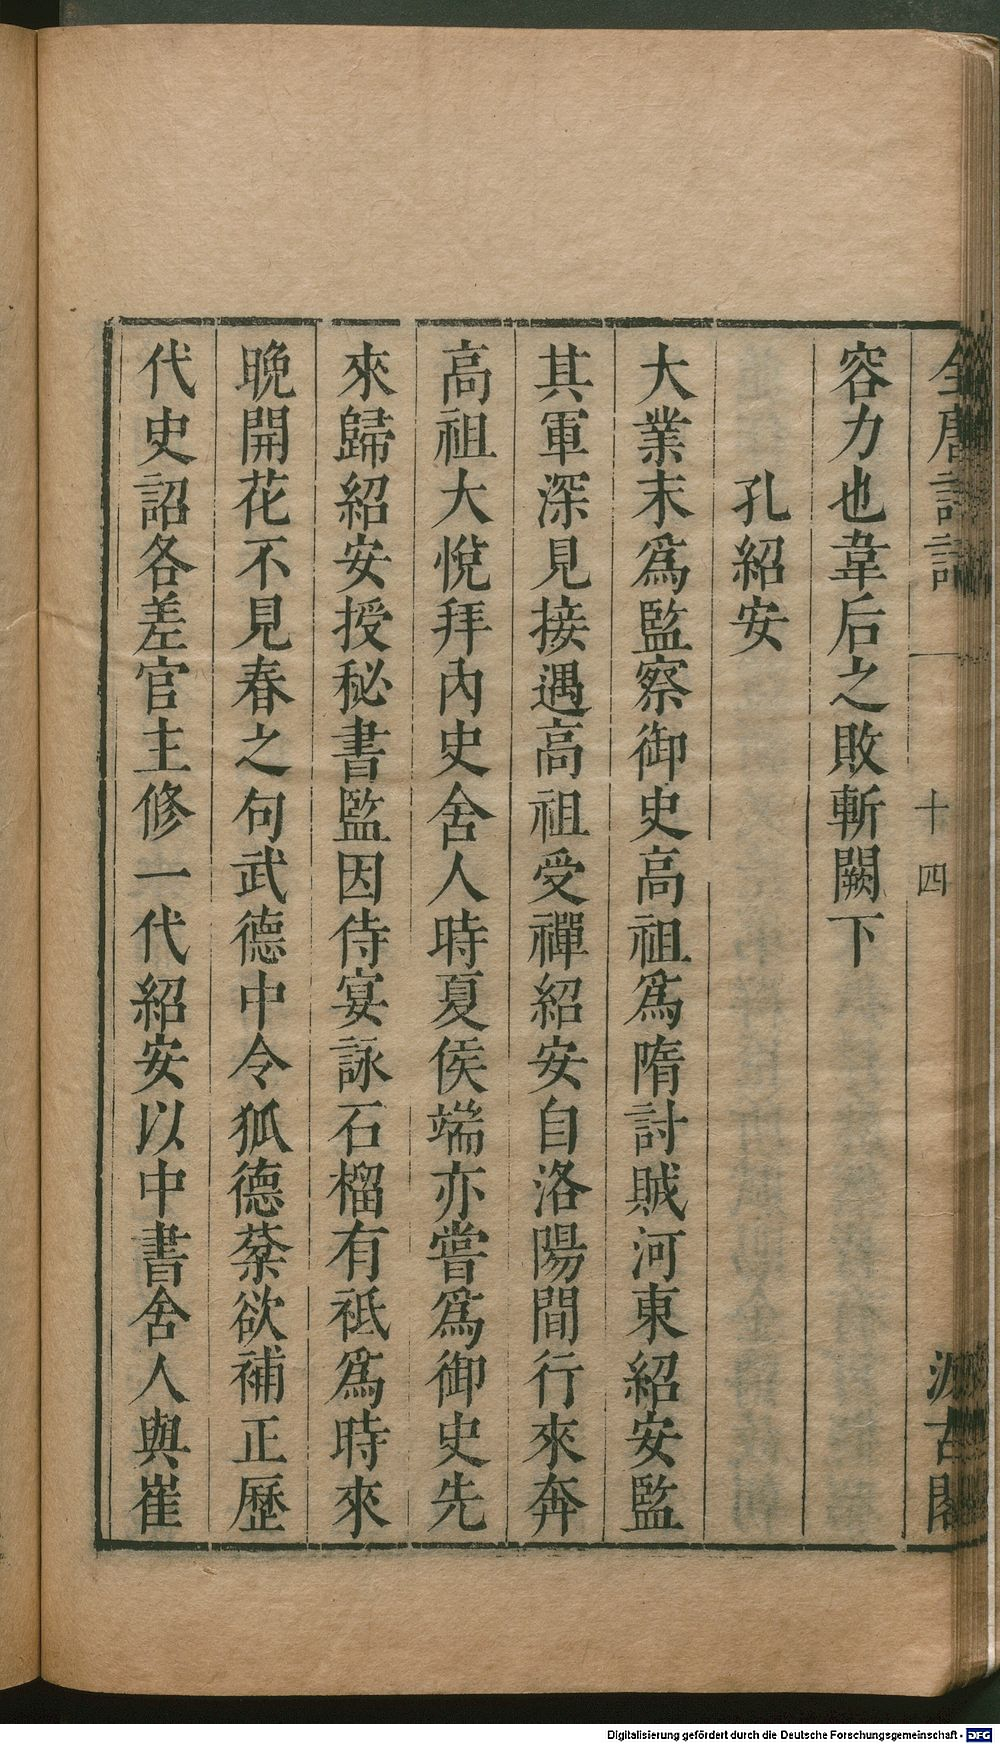 全唐詩話 一 十四 汲古閣
容力也韋后之敗斬闕下
孔紹安
大業末爲監察御史高祖爲隋討賊河東紹安監
其軍深見接遇高祖受禪紹安自洛陽間行來奔
高祖大悅拜內史舍人時夏侯端亦嘗爲御史先
來歸紹安授秘書監因侍宴詠石榴有祗爲時來
晚開花不見春之句武德中令狐德棻欲補正歷
代史詔各差官主修一代紹安以中書舍人與崔
Digitalisierung gefördert durch die Deutsche Forschungsgemeinschaft - DFG